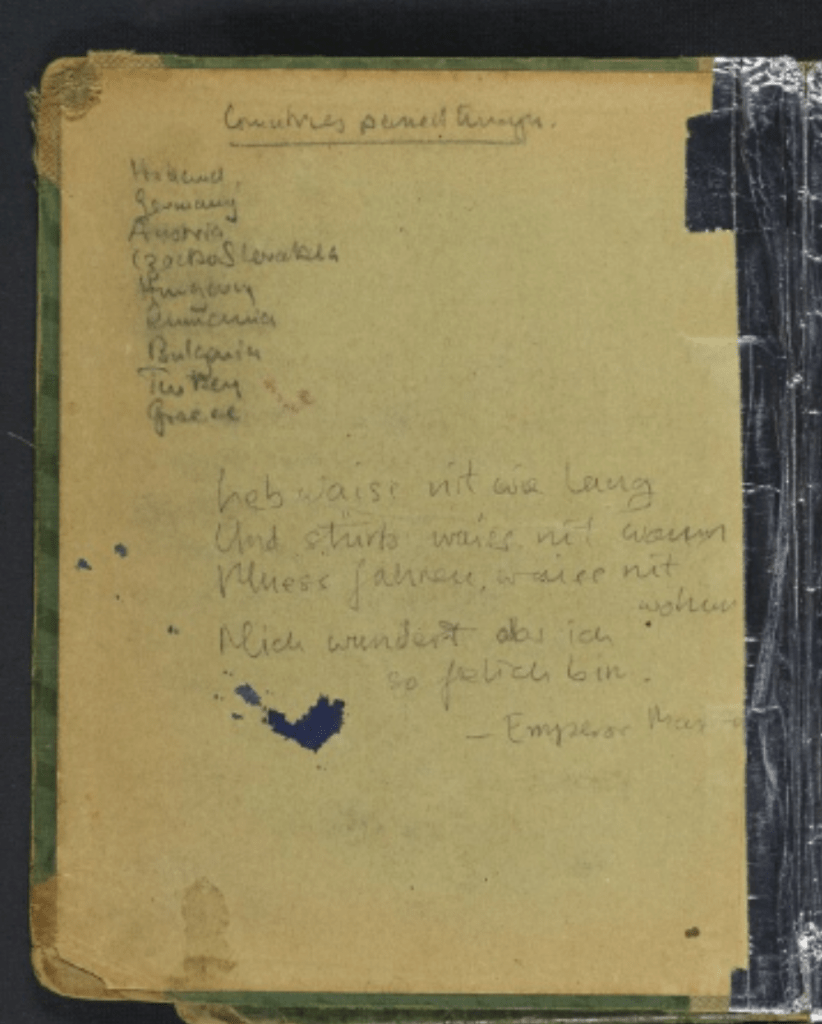 Countries passed through.
Holland
Germany
Austria
CzechoSlovakia
Hungary
Rumania
Bulgaria
Turkey
Greece
Leb waiss nit wie lang
Und stürb waiss nit wann
Muess fahren, waiss nit
wohin
Mich wundert das ich
so frelich bin.
— Emperor Max